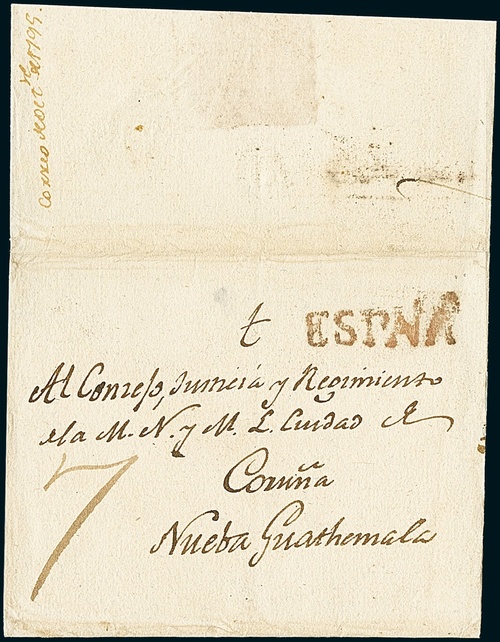 Correo de Oct.re de 1795.
t
ESPAÑA
Al Consejo, Justicia y Regimiento
de la M. N. y M. L. Ciudad de
Coruña
7
Nueba Guathemala